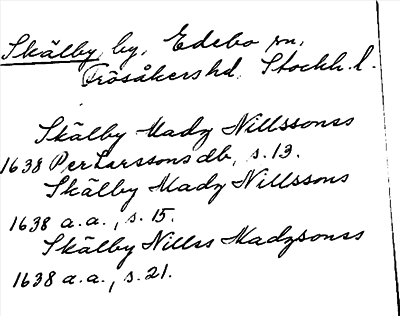 Skälby, by, Edebo sn,
Frösåkers hd, Stockh. l.
Skälby Madz Nillssonss
1638 Per Larssons db, s. 13.
Skälby Madz Nillssons
1638 a.a., s. 15.
Skälby Nillss Madzsonss
1638 a.a., s. 21.